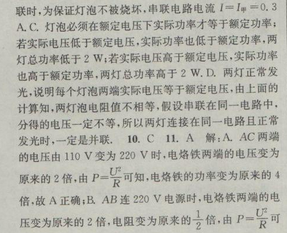 联时,为保证灯泡不被烧坏,串联电路电流 I=I甲=0.3
A. C. 灯泡必须在额定电压下实际功率才等于额定功率;
若实际电压低于额定电压,实际功率也低于额定功率,两
灯总功率低于 2 W;若实际电压高于额定电压,实际功率
也高于额定功率,两灯总功率高于 2 W. D. 两灯正常发
光,说明每个灯泡两端实际电压等于额定电压,由上面的
计算知,两灯泡电阻值不相等,假设串联在同一电路中,
分得的电压一定不等,所以两灯连接在同一电路且正常
发光时,一定是并联. 10. C 11. A 解:A. AC 两端
的电压由 110 V 变为 220 V 时,电烙铁两端的电压变为
原来的 2 倍,由 P=U²/R 可知,电烙铁的功率变为原来的 4
倍,故 A 正确;B. AB 连 220 V 电源时,电烙铁两端的电
压变为原来的 2 倍,电阻变为原来的 1/2 倍,由 P=U²/R 可